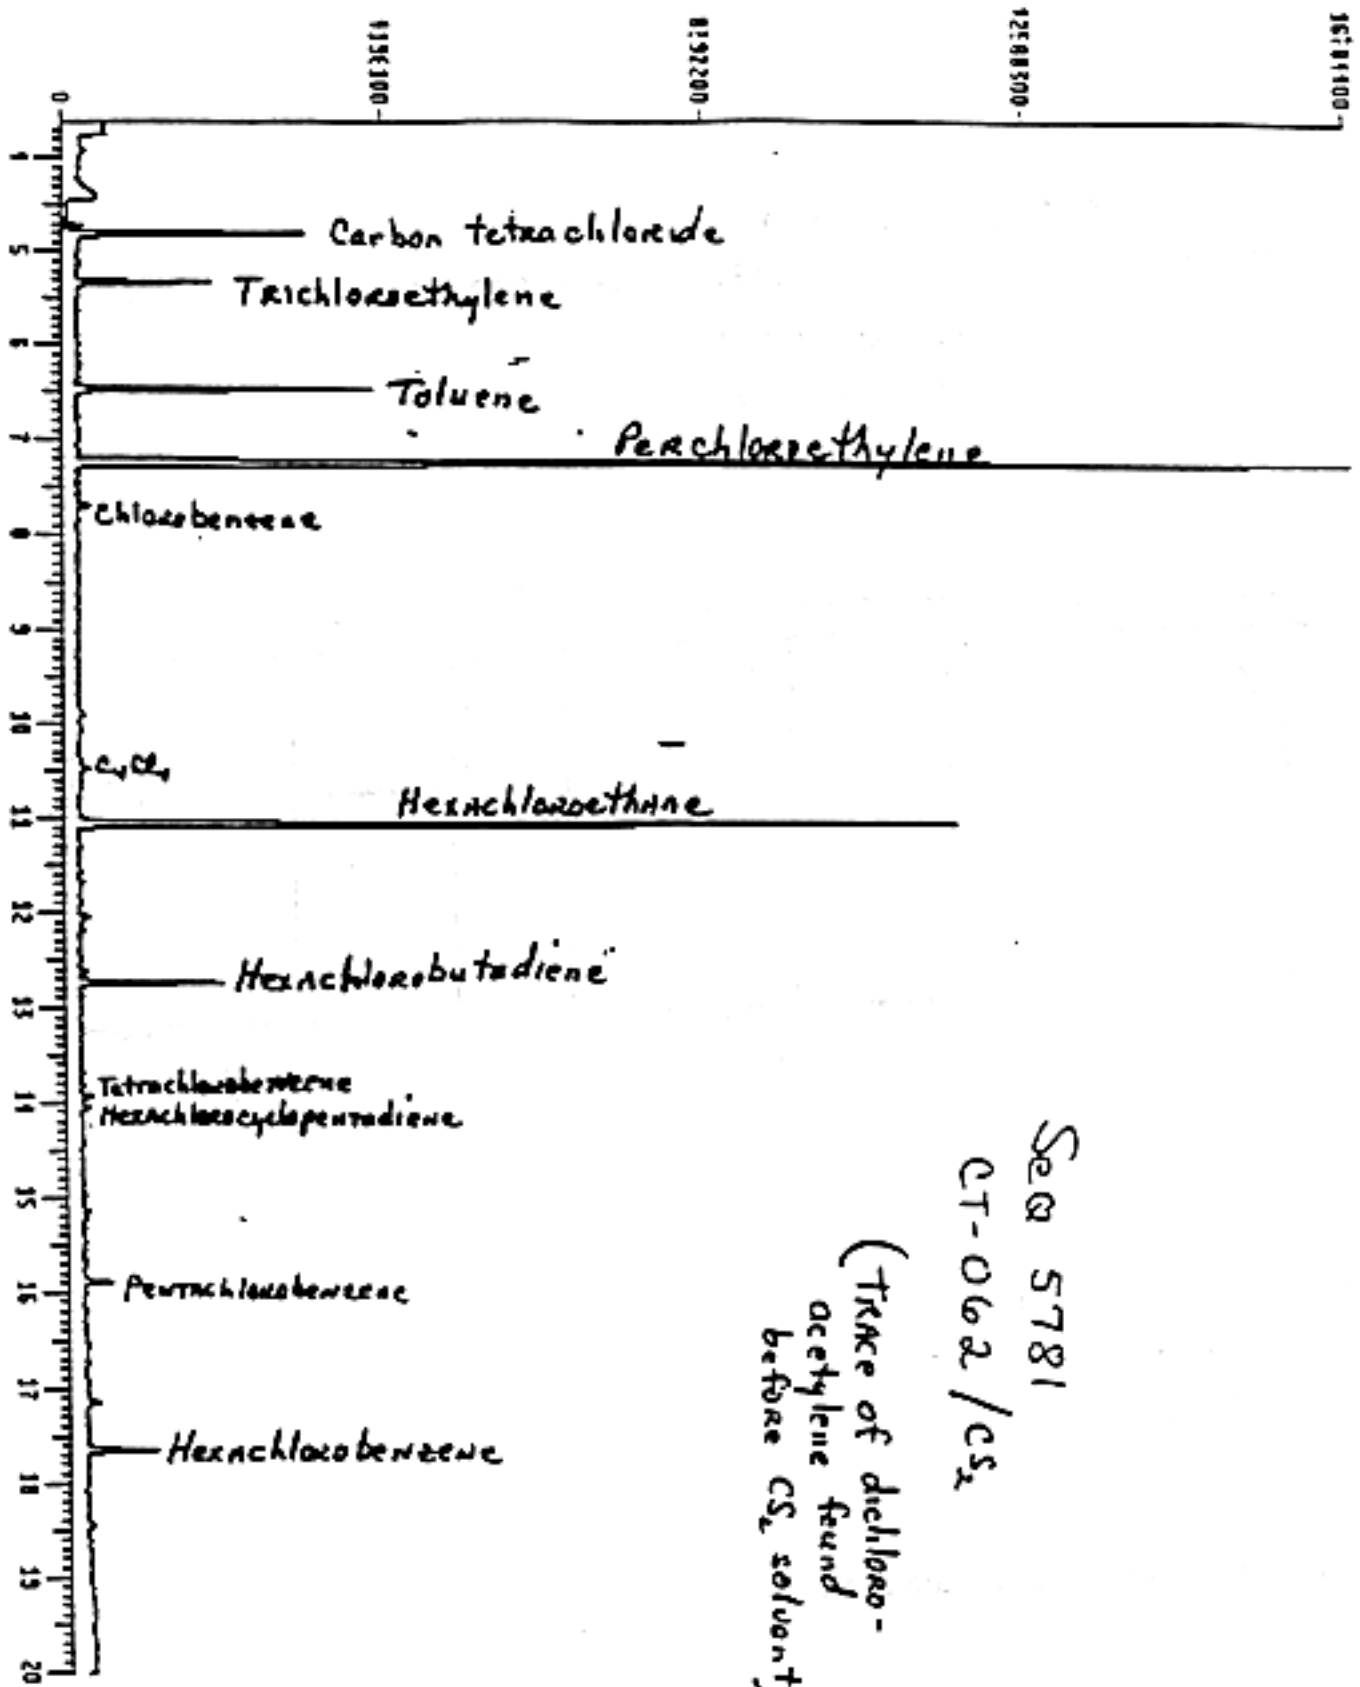 0
4096100
8192200
12288300
16384400
4
5
6
7
8
9
10
11
12
13
14
15
16
17
18
19
20
Carbon tetrachloride
Trichloroethylene
Toluene
Perchloroethylene
Chlorobenzene
C4Cl4
Hexachloroethane
Hexachlorobutadiene
Tetrachlorobenzene
Hexachlorocyclopentadiene
Pentachlorobenzene
Hexachlorobenzene
SeQ 5781
CT-062/CS2
(Trace of dichloro-
acetylene found
before CS2 solvent)